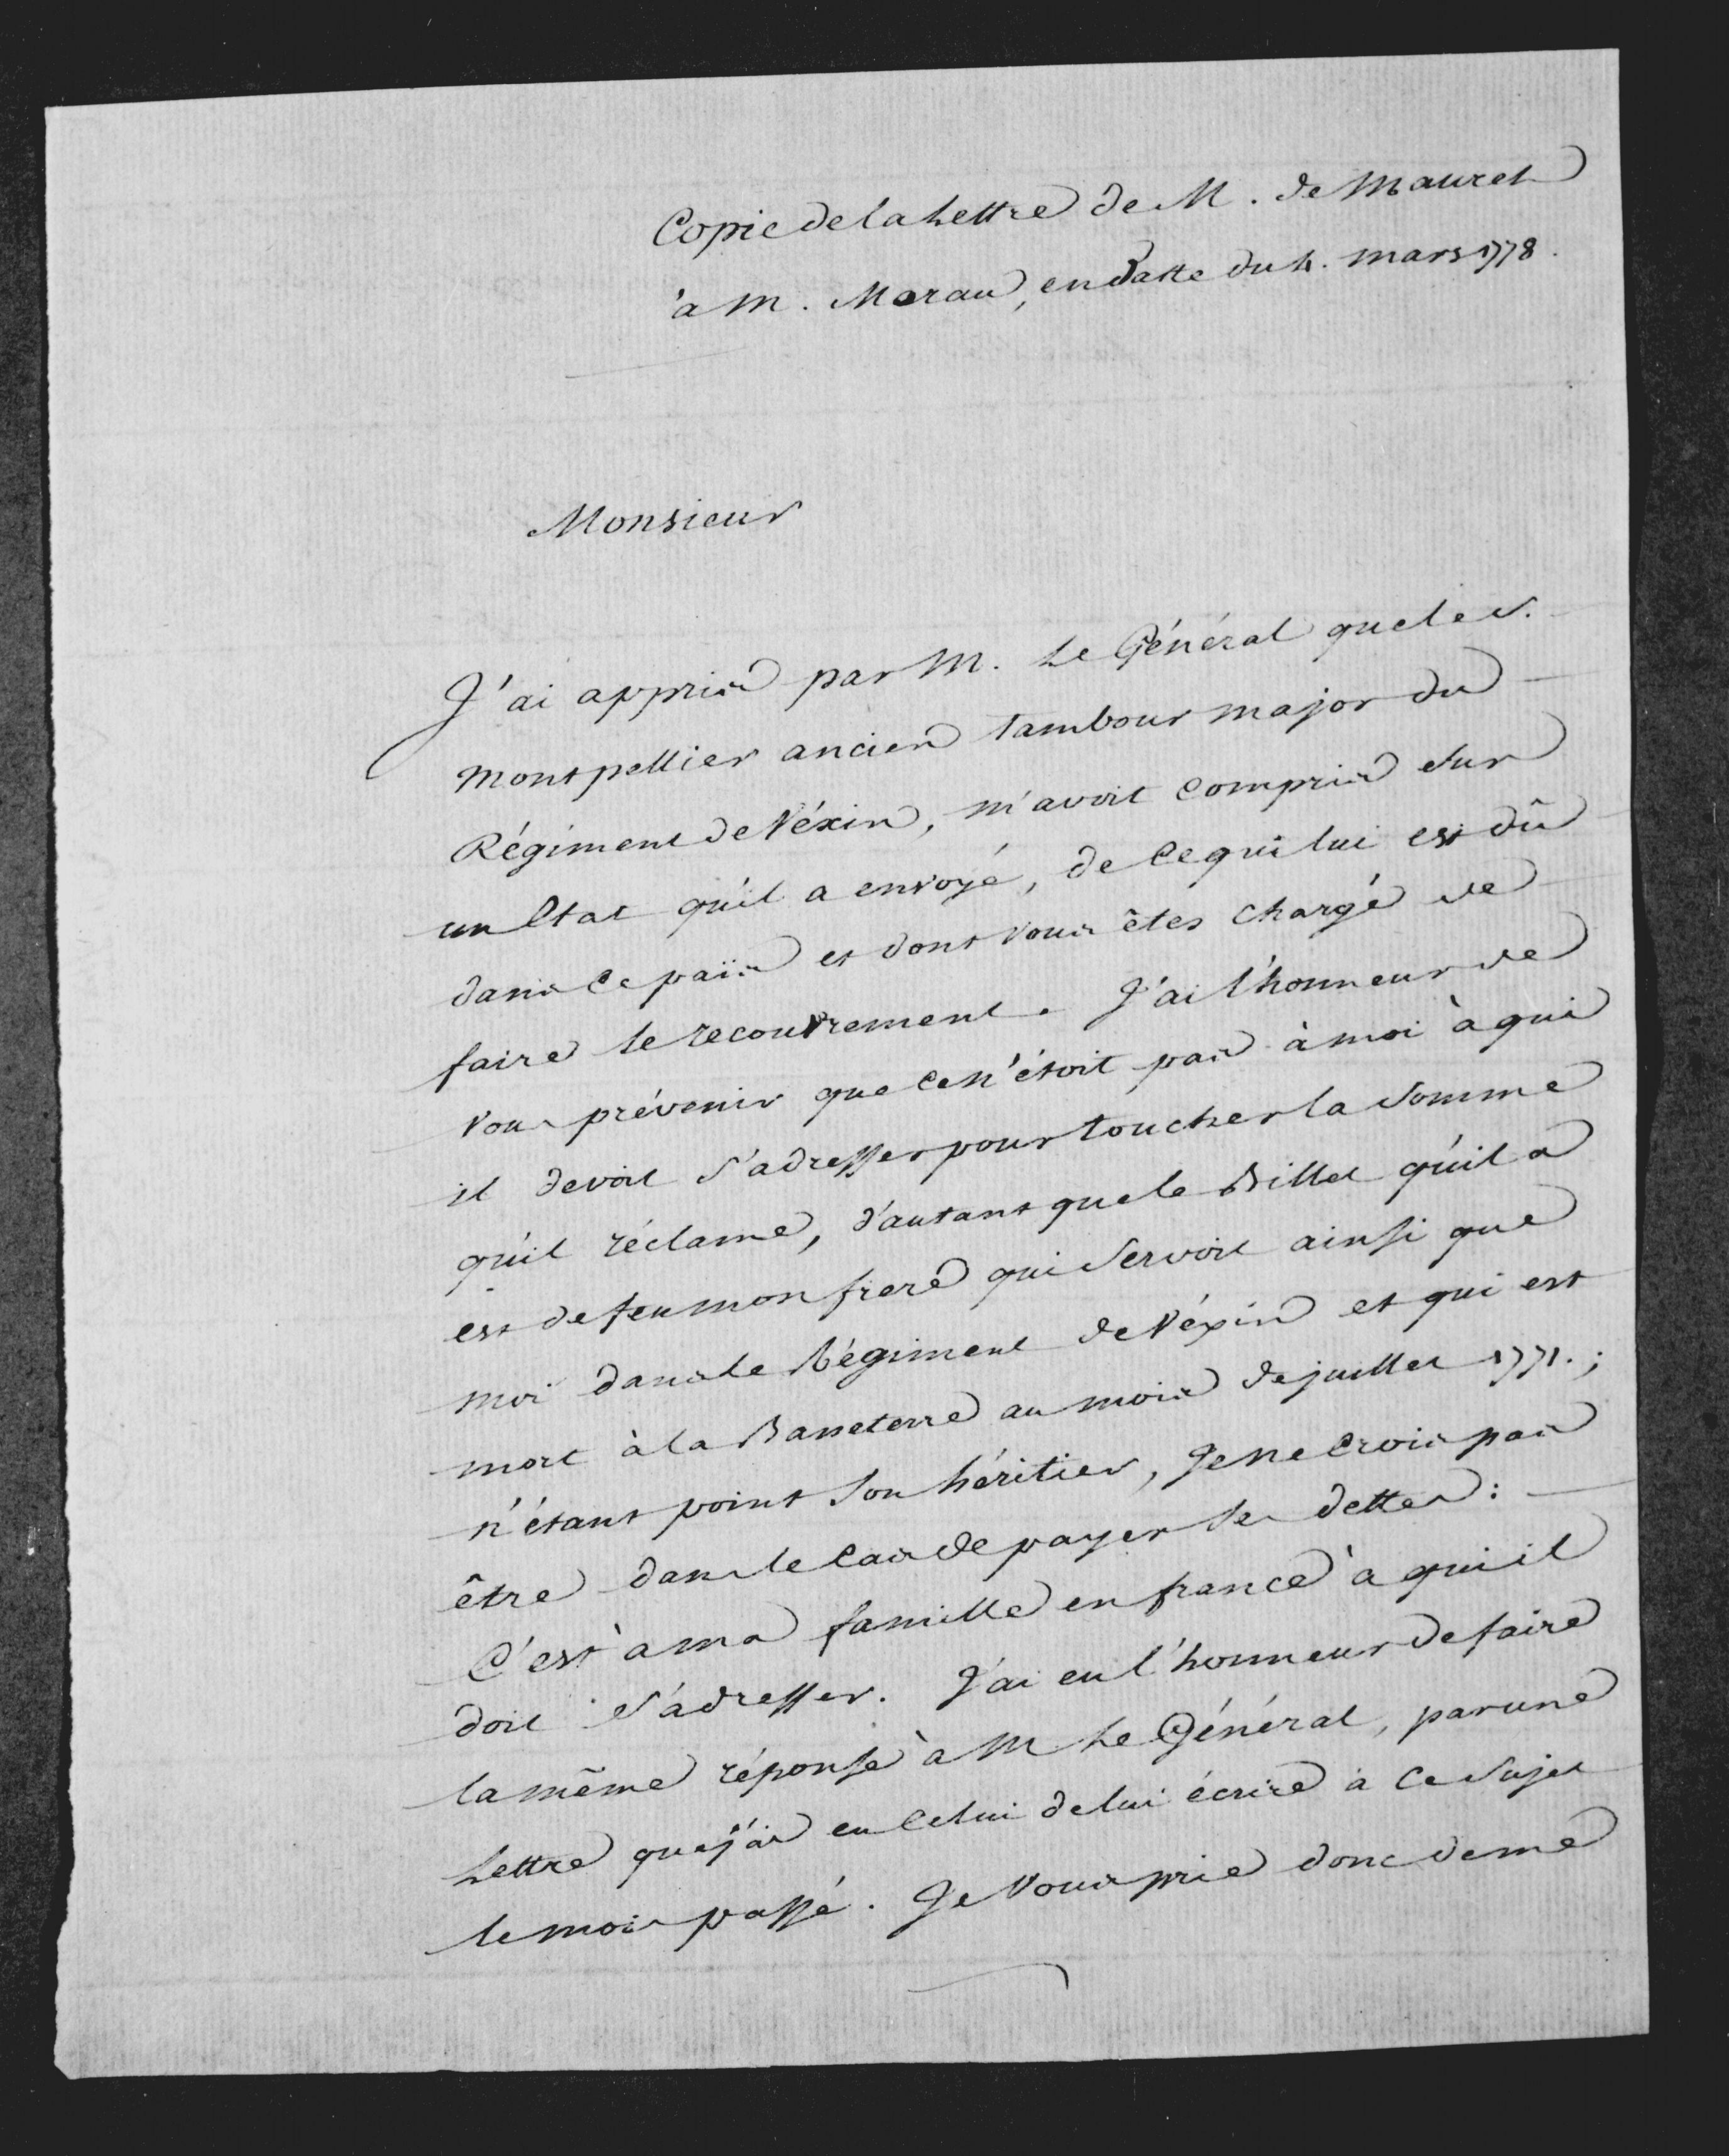 Copie de la Lettre de M. de Mauret
à M. Morau, en datte du 4. mars 1778.
Monsieur
J'ai appris par M. Le Général que le S.
Montpellier ancien tambour major du
Régiment de Véxin, m'avoit compris sur
un Etat qu'il a envoyé, de ce qui lui est dû
dans ce païs et dont vous êtes chargé de
faire le recouvrement. J'ai l'honneur de
vous prévenir que ce n'étoit pas à moi à qui
il devoit s'adresser pour toucher la somme
qu'il réclame, d'autant que le Billet qu'il a
est de feu mon frere qui servoit ainsi que
moi dans le Régiment de Véxin et qui est
mort à la Basseterre au mois de juillet 1771.;
n'étant point son héritier, Je ne crois pas
être dans le cas de payer ses dettes:
C'est à ma famille en france à qui il
doit s'adresser. J'ai eu l'honneur de faire
la même réponse à M Le Général, par une
Lettre que j'ai eu celui de lui écrire à ce sujet
le mois passé. Je vous prie donc de me